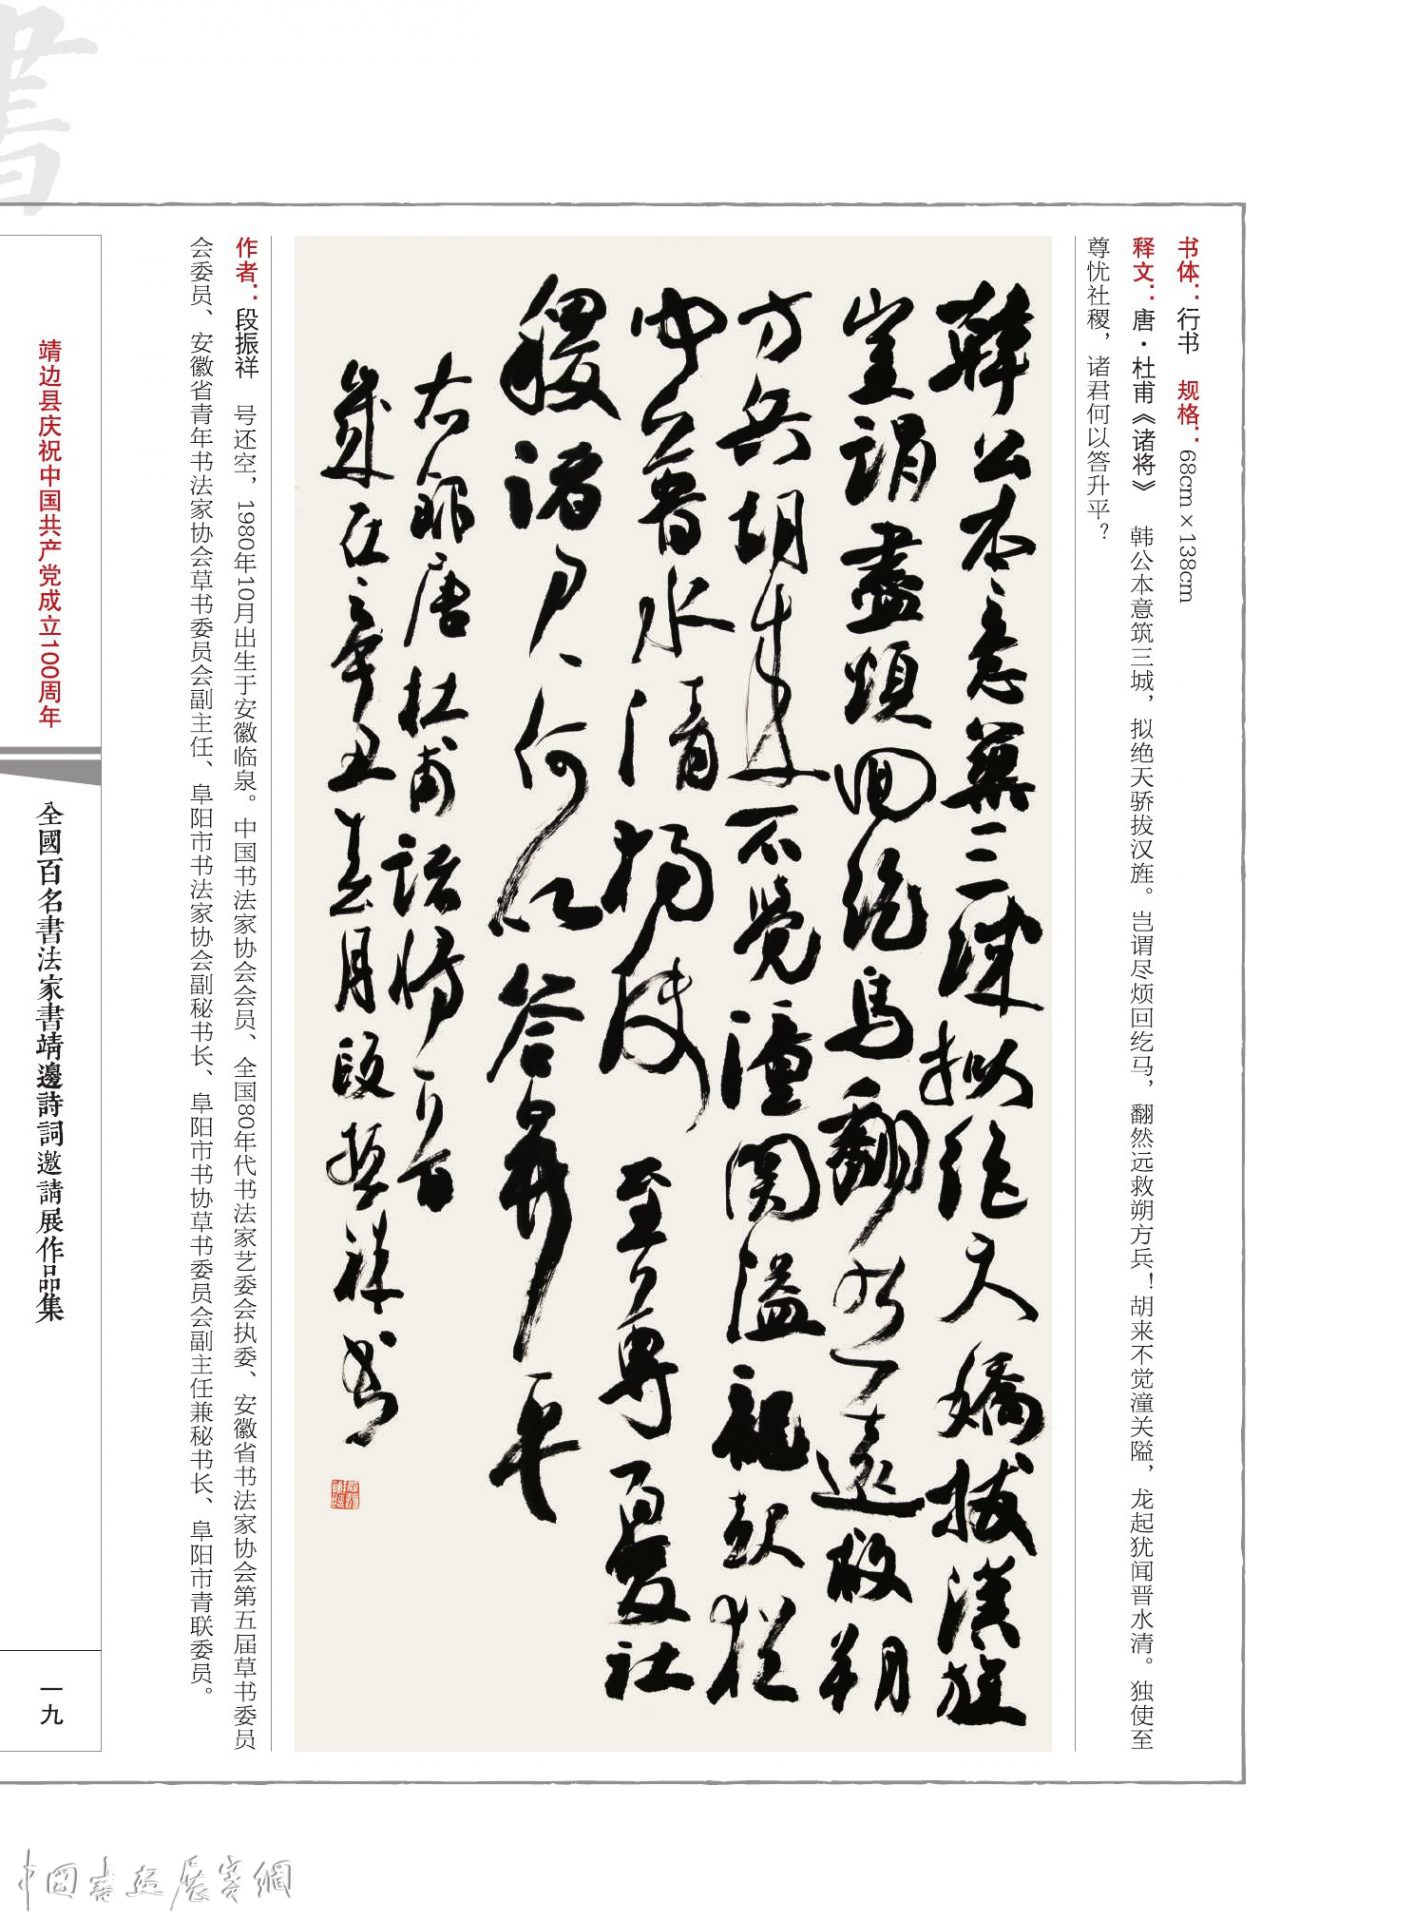 書
书体：行书 规格：68cm×138cm
释文：唐·杜甫《诸将》 韩公本意筑三城，拟绝天骄拔汉旌。岂谓尽烦回纥马，翻然远救朔方兵！胡来不觉潼关隘，龙起犹闻晋水清。独使至
尊忧社稷，诸君何以答升平？
韓公本意築三城擬絕天驕拔漢旌
豈謂盡煩回紇馬翻然遠救朔
方兵胡來不覺潼關隘龍起猶
聞晉水清獨使至尊憂社
稷諸君何以答昇平
右録唐杜甫諸將一首
歲在辛丑春月段振祥書
作者：段振祥 号还空，1980年10月出生于安徽临泉。中国书法家协会会员、全国80年代书法家艺委会执委、安徽省书法家协会第五届草书委员
会委员、安徽省青年书法家协会草书委员会副主任、阜阳市书法家协会副秘书长、阜阳市书协草书委员会副主任兼秘书长、阜阳市青联委员。
靖边县庆祝中国共产党成立100周年
全國百名書法家書靖邊詩詞邀請展作品集
一九
中國書画展賽網